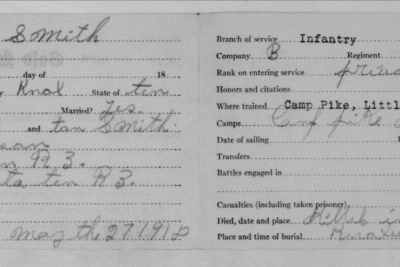 Smith
day of 18
Knol State of ten
Married? Yes
and tan Smith
R 3.
ta ten R 3.
may th 27 1918
Branch of service Infantry
Company B Regiment
Rank on entering service
Honors and citations
Where trained Camp Pike, Littl
Camps Camp pike
Date of sailing
Transfers
Battles engaged in
Casualties (including taken prisoner),
Died, date and place Killed in
Place and time of burial